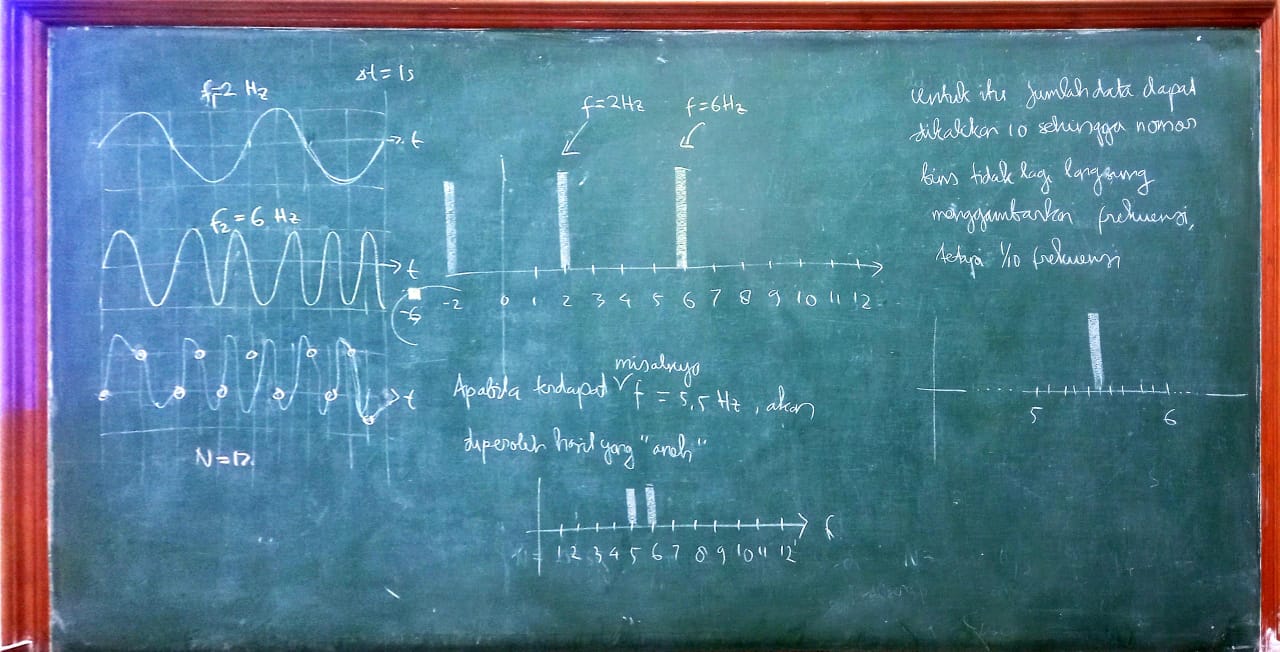 Δt = 1s
f1=2 Hz
t
f2 = 6 Hz
t
t
N=12
f=2Hz
f=6Hz
-6
-2 0 1 2 3 4 5 6 7 8 9 10 11 12
misalnya
Apabila terdapat √ f = 5,5 Hz, akan
diperoleh hasil yang "aneh"
f
1 2 3 4 5 6 7 8 9 10 11 12
untuk itu jumlah data dapat
dikalikan 10 sehingga nomor
bins tidak lagi langsung
menggambarkan frekuensi,
tetapi 1/10 frekuensi
5 6